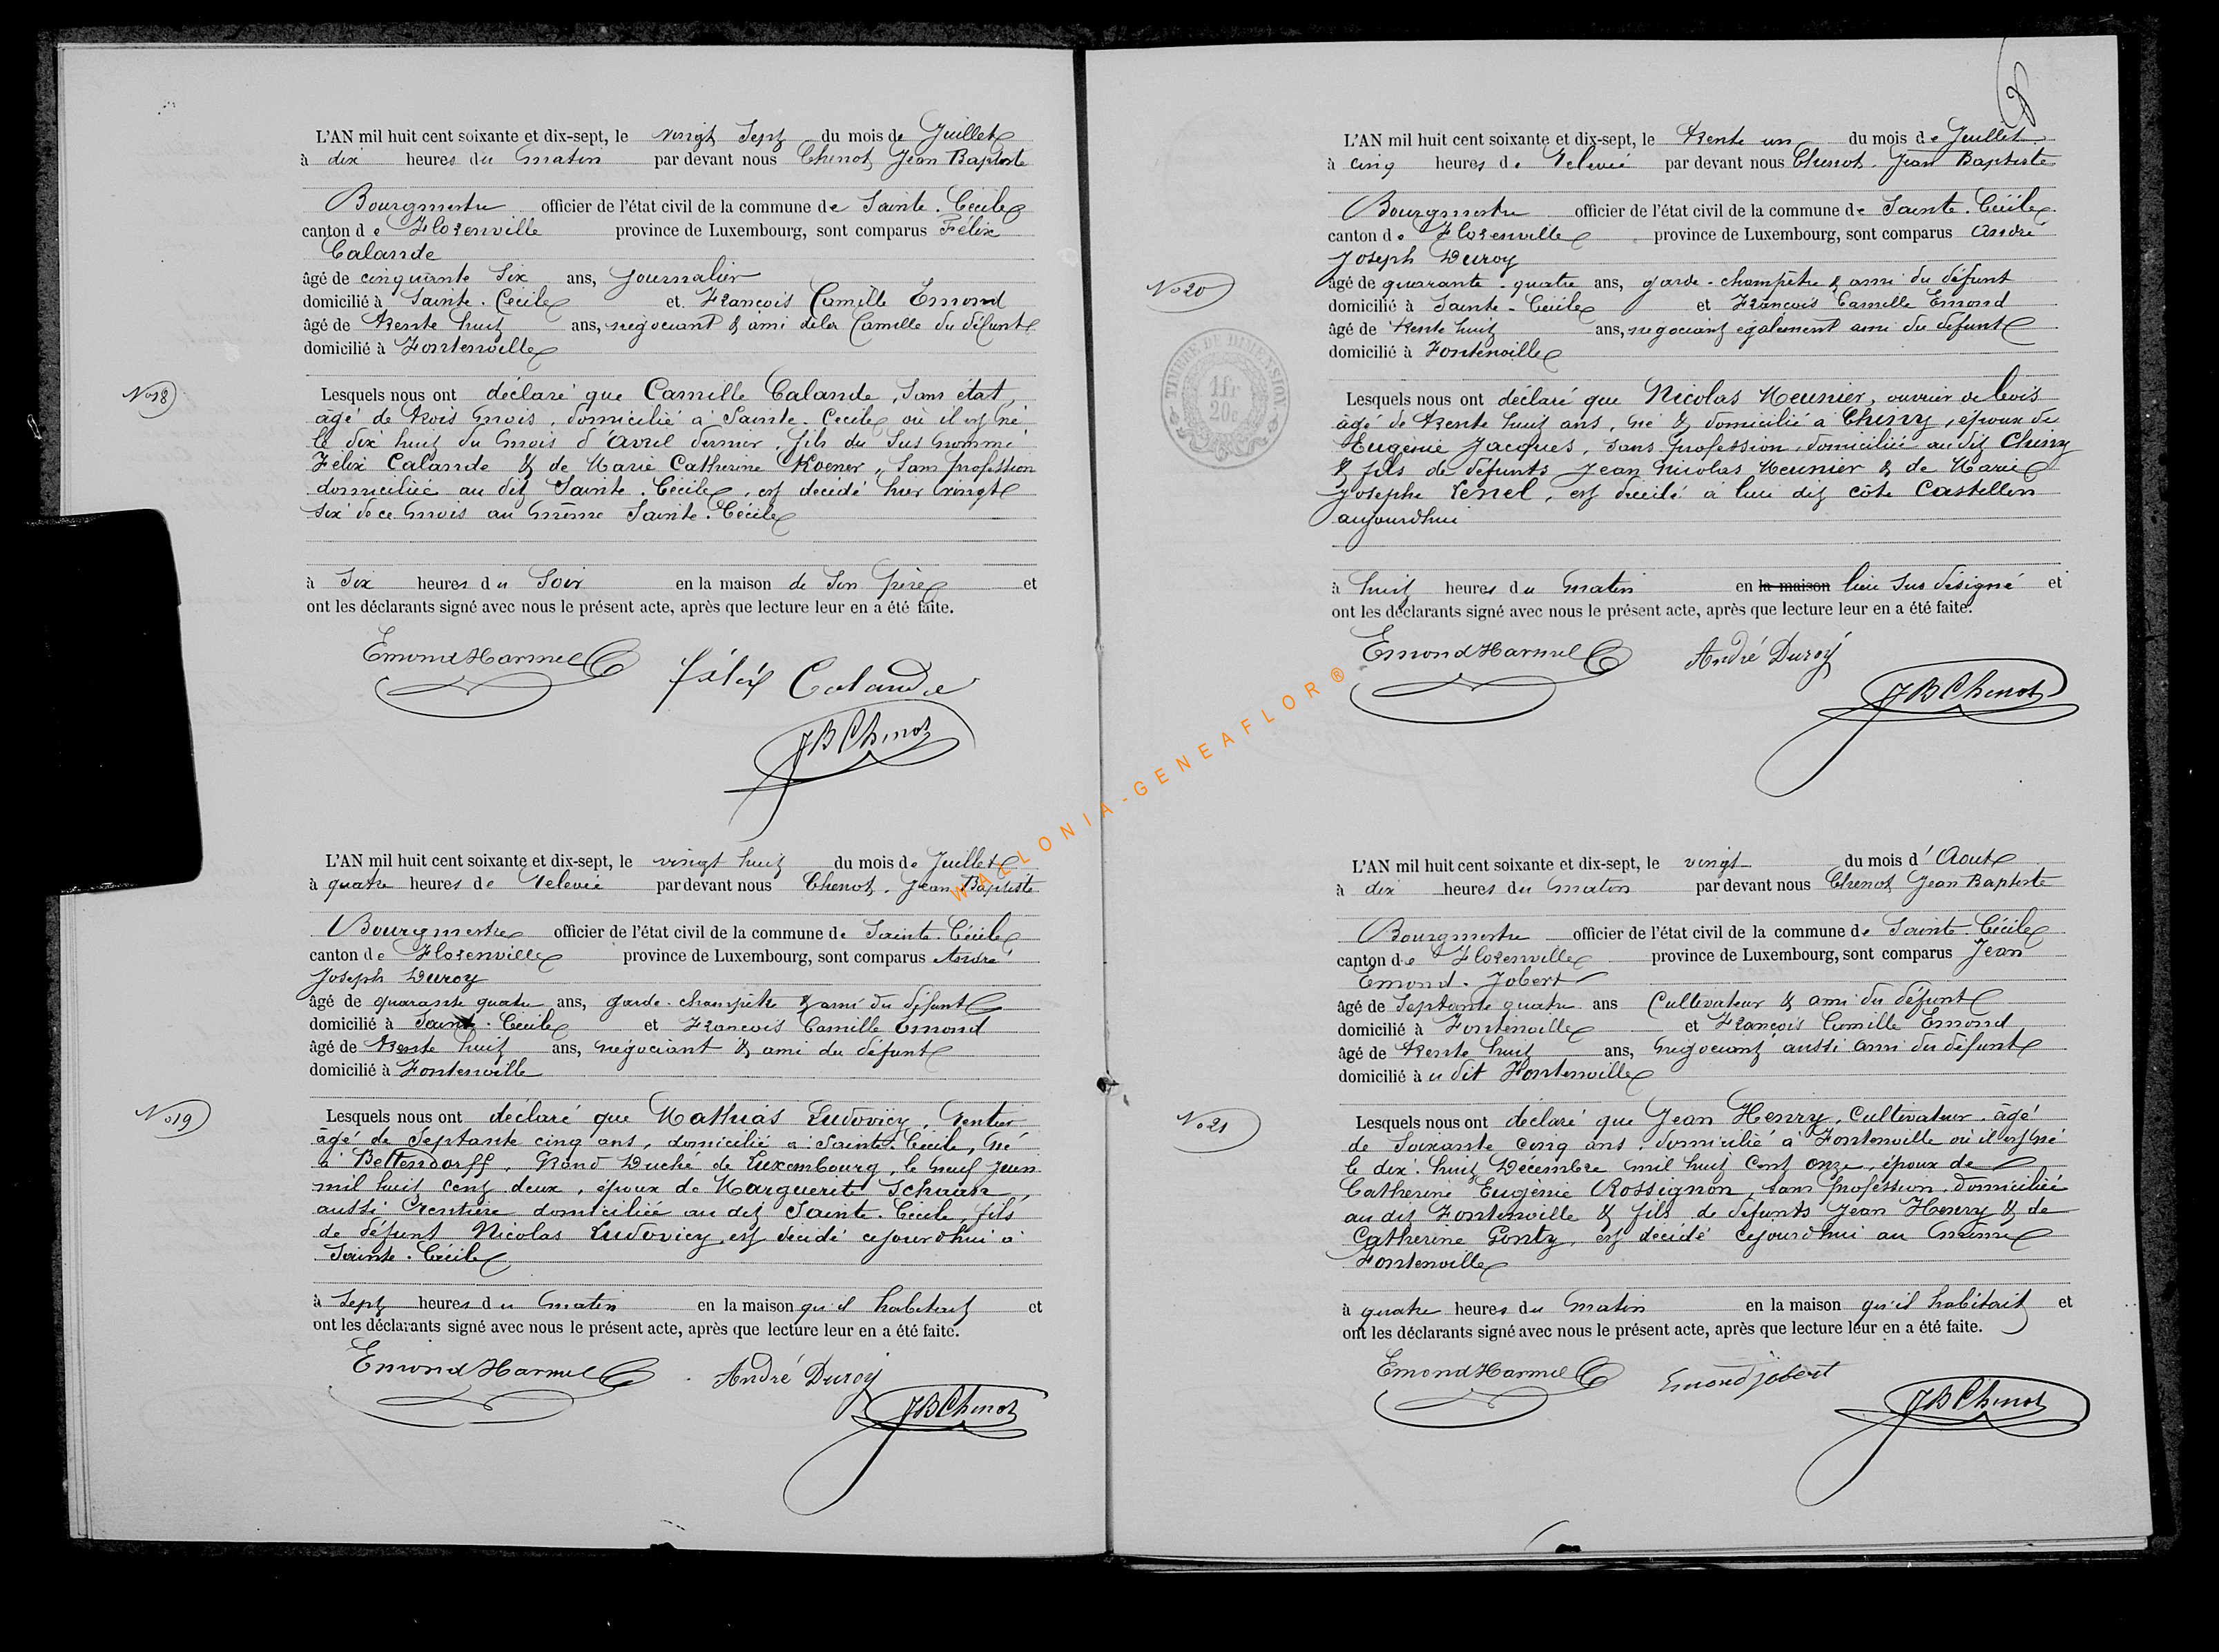 L'AN mil huit cent soixante et dix-sept, le vingt sept du mois de Juillet
à dix heures du matin par devant nous Chenot Jean Baptiste
Bourgmestre officier de l'état civil de la commune de Sainte-Cécile
canton de Florenville province de Luxembourg, sont comparus Félix
Calande
âgé de cinquante six ans, journalier
domicilié à Sainte-Cécile et François Camille Emond
âgé de trente huit ans, négociant & ami de la Camille du défunt
domicilié à Fontenoille
No 18
Lesquels nous ont déclaré que Camille Calande, sans état,
âgé de trois mois, domicilié à Sainte-Cécile où il est né
le dix huit du mois d'avril dernier, fils du sus nommé
Félix Calande & de Marie Catherine Koener, sans profession
domiciliée au dit Sainte-Cécile, est décédé hier vingt
six de ce mois au même Sainte-Cécile
à six heures du soir en la maison de son père et
ont les déclarants signé avec nous le présent acte, après que lecture leur en a été faite.
Emond Harmel
félix Calande
JB Chenot
L'AN mil huit cent soixante et dix-sept, le vingt huit du mois de Juillet
à quatre heures de relevée par devant nous Chenot, Jean Baptiste
Bourgmestre officier de l'état civil de la commune de Sainte-Cécile
canton de Florenville province de Luxembourg, sont comparus André
Joseph Duroy
âgé de quarante quatre ans, garde-champêtre & ami du défunt
domicilié à Sainte-Cécile et François Camille Emond
âgé de trente huit ans, négociant & ami du défunt
domicilié à Fontenoille
No 19
Lesquels nous ont déclaré que Mathias Ludovicy, rentier
âgé de septante cinq ans, domicilié à Sainte-Cécile, né
à Bettendorff, Grand Duché de Luxembourg, le neuf juin
mil huit cent deux, époux de Marguerite
aussi rentière domiciliée au dit Sainte-Cécile, fils
de défunt Nicolas Ludovicy, est décédé cejourd'hui à
Sainte-Cécile
à sept heures du matin en la maison qu'il habitait et
ont les déclarants signé avec nous le présent acte, après que lecture leur en a été faite.
Emond Harmel
André Duroy
JB Chenot
L'AN mil huit cent soixante et dix-sept, le trente un du mois de Juillet
à cinq heures de relevée par devant nous Chenot, Jean Baptiste
Bourgmestre officier de l'état civil de la commune de Sainte-Cécile
canton de Florenville province de Luxembourg, sont comparus André
Joseph Duroy
âgé de quarante-quatre ans, garde-champêtre & ami du défunt
domicilié à Sainte-Cécile et François Camille Emond
âgé de trente huit ans, négociant également ami du défunt
domicilié à Fontenoille
No 20
TIMBRE DE DIMENSION
1 fr
20c
Lesquels nous ont déclaré que Nicolas Meunier, ouvrier de bois
âgé de trente huit ans, né & domicilié à Chiny, époux de
Eugénie Jacques, sans profession, domiciliée au dit Chiny
& fils de défunts Jean Nicolas Meunier & de Marie
Josephe, est décédé à lieu dit côte Castellen
aujourdhui
à huit heures du matin en la maison lieu sus désigné et
ont les déclarants signé avec nous le présent acte, après que lecture leur en a été faite.
Emond Harmel
André Duroy
JB Chenot
L'AN mil huit cent soixante et dix-sept, le vingt du mois d'Aout
à dix heures du matin par devant nous Chenot Jean Baptiste
Bourgmestre officier de l'état civil de la commune de Sainte-Cécile
canton de Florenville province de Luxembourg, sont comparus Jean
Emond-Jobert
âgé de septante quatre ans Cultivateur & ami du défunt
domicilié à Fontenoille et François Camille Emond
âgé de trente huit ans, négociant aussi ami du défunt
domicilié àu dit Fontenoille
No 21
Lesquels nous ont déclaré que Jean Henry, Cultivateur, âgé
de soixante cinq ans, domicilié à Fontenoille où il est né
le dix-huit Décembre mil huit cent onze, époux de
Catherine Eugènie Rossignon, sans profession, domiciliée
au dit Fontenoille & fils de défunts Jean Henry & de
Catherine Gonty, est décédé cejourd'hui au même
Fontenoille
à quatre heures du matin en la maison qu'il habitait et
ont les déclarants signé avec nous le présent acte, après que lecture leur en a été faite.
Emond Harmel
Emond jobert
JB Chenot
WALLONIA-GENEAFLOR ®